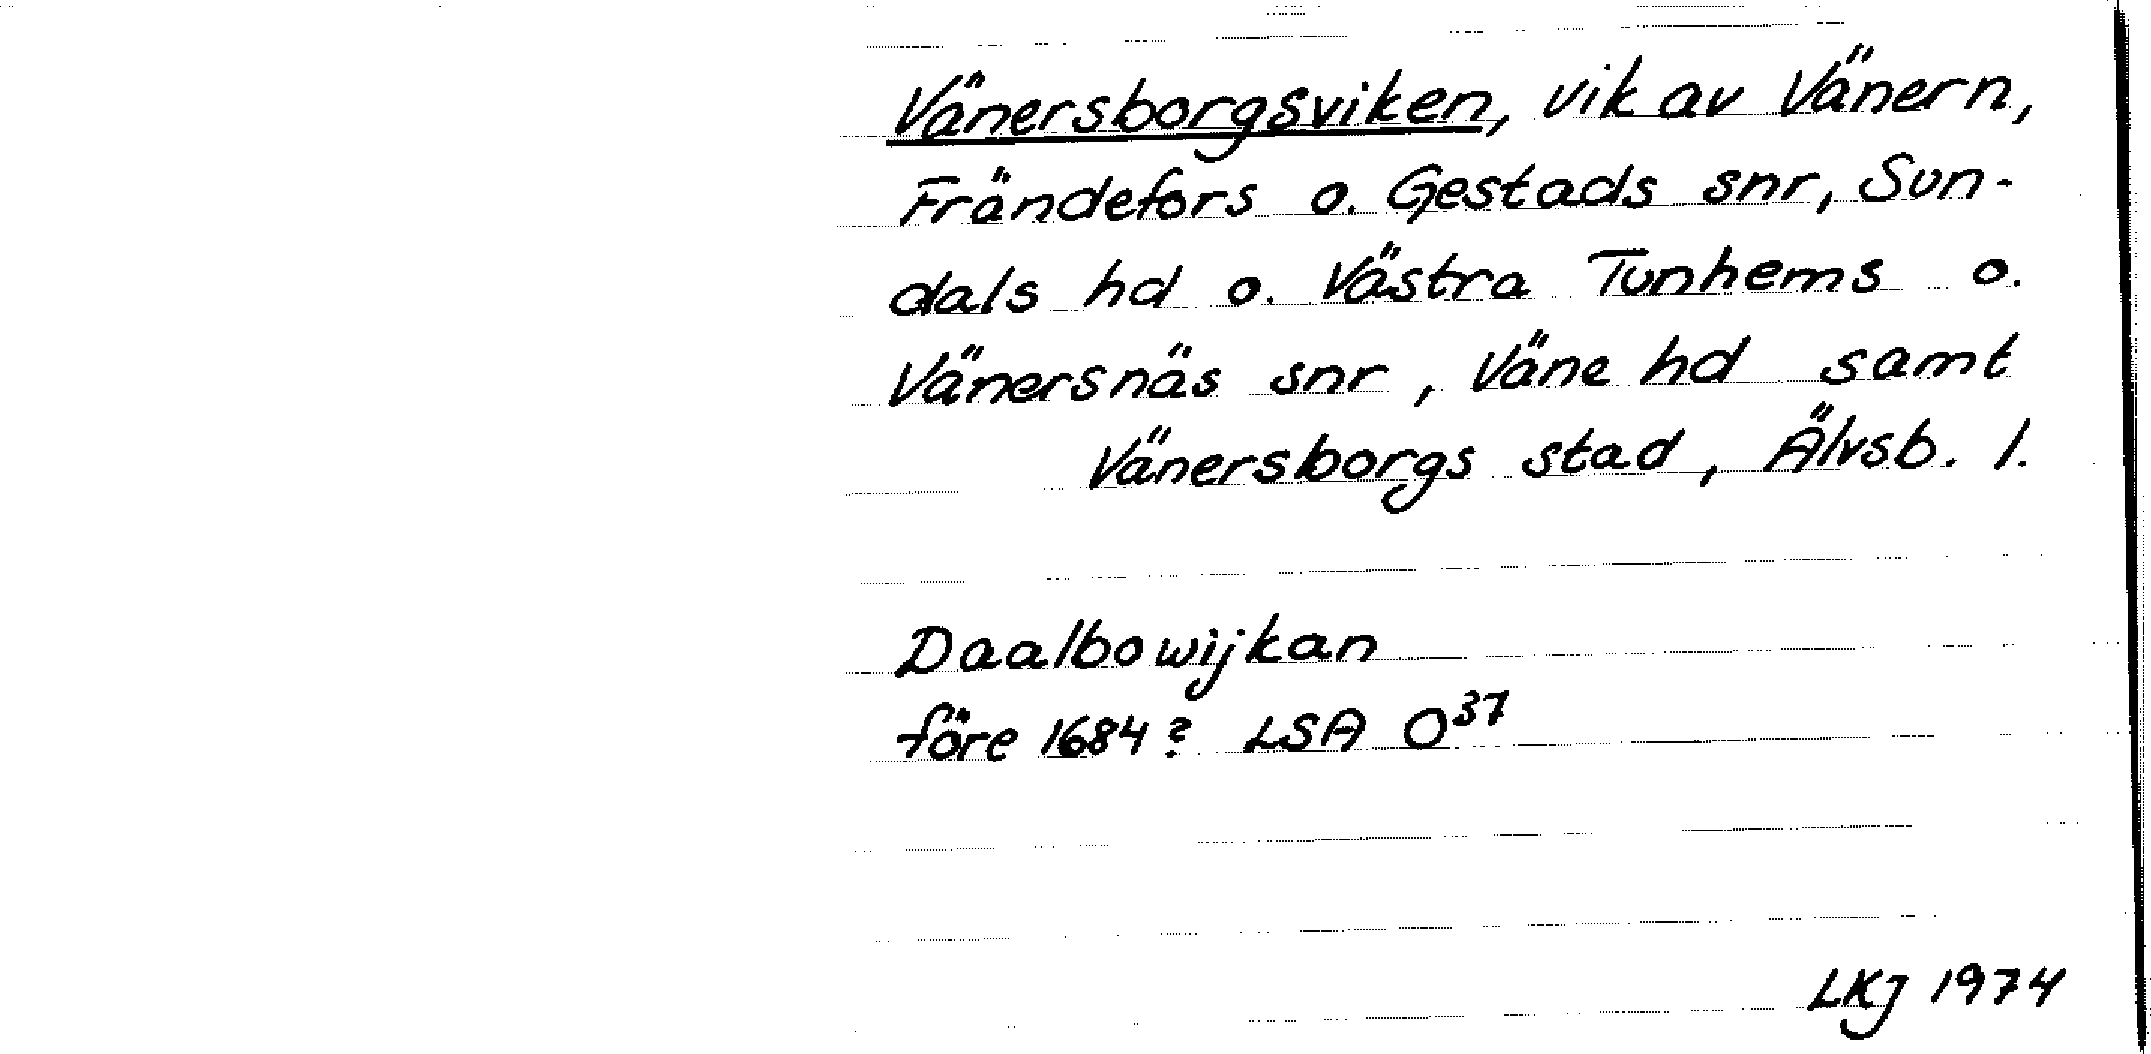 Vänersborgsviken, vik av Vänern,
Frändefors o. Gestads snr, Sun-
dals hd o. Västra Tunhems o.
Vänersnäs snr, Väne hd samt
Vänersborgs stad, Älvsb. l.
Daalbowijkan
före 1684? LSA O³⁷
LKJ 1974